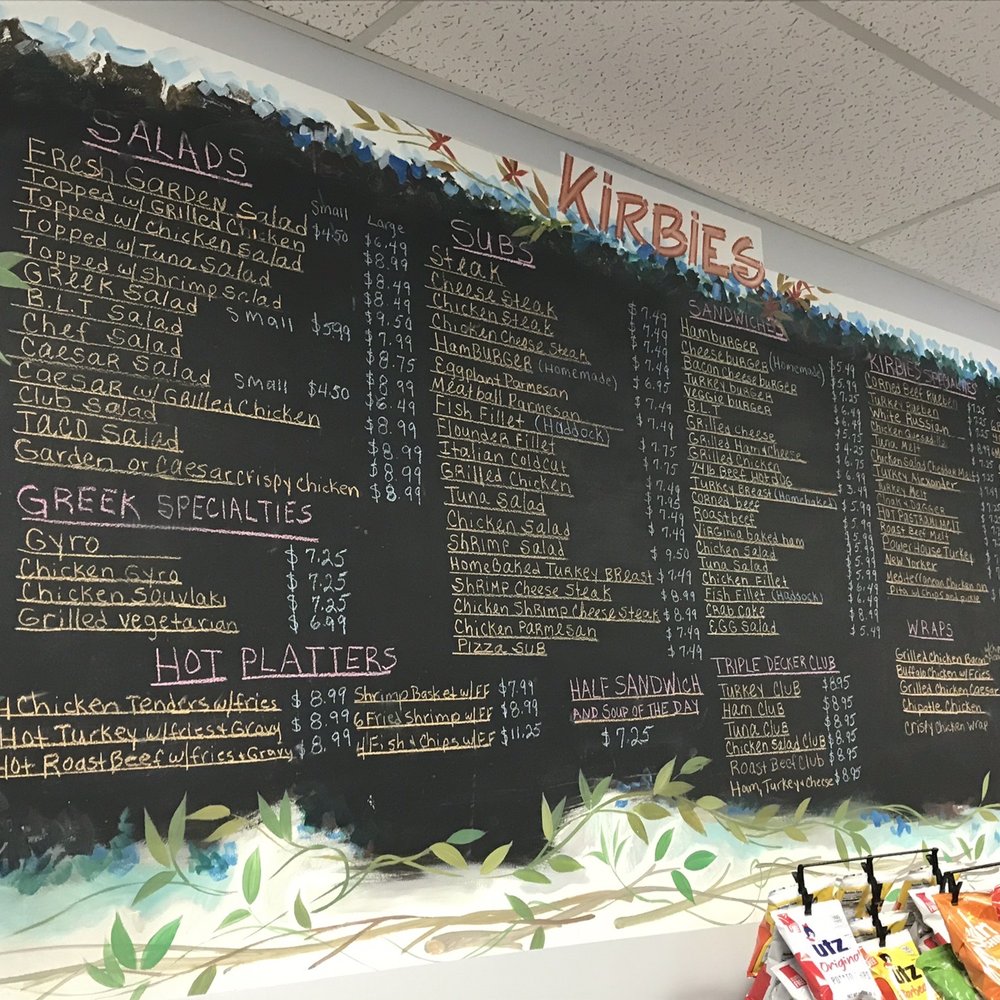 KIRBIES
SALADS
Small Large
Fresh Garden Salad $4.50 $6.49
Topped w/ Grilled Chicken $8.99
Topped w/ Chicken Salad $8.49
Topped w/ Tuna Salad $8.49
Topped w/ Shrimp Salad $9.50
Greek Salad Small $5.99 $7.99
B.L.T Salad $8.75
Chef Salad $8.99
Caesar Salad Small $4.50 $6.49
Caesar w/ Grilled Chicken $8.99
Club Salad $8.99
TACO Salad $8.99
Garden or Caesar crispy chicken $8.99
GREEK SPECIALTIES
Gyro $7.25
Chicken Gyro $7.25
Chicken Souvlaki $7.25
Grilled Vegetarian $6.99
HOT PLATTERS
4 Chicken Tenders w/fries $8.99
Hot Turkey w/fries + Gravy $8.99
Hot Roast Beef w/fries + Gravy $8.99
Shrimp Basket w/FF $7.99
6 Fried Shrimp w/FF $8.99
4 Fish & Chips w/FF $11.25
SUBS
Steak $7.49
Cheese Steak $7.49
Chicken Steak $7.49
Chicken Cheese Steak $7.49
HAMBURGER (Homemade) $6.95
Eggplant Parmesan
Meatball Parmesan $7.49
Fish Fillet (Haddock)
Flounder Fillet $7.75
Italian Coldcut $7.75
Grilled Chicken $7.49
Tuna Salad $7.95
Chicken Salad $7.49
Shrimp Salad $9.50
Home Baked Turkey Breast $7.49
Shrimp Cheese Steak $8.99
Chicken Shrimp Cheese Steak $8.99
Chicken Parmesan $7.49
Pizza Sub $7.49
HALF SANDWICH
AND SOUP OF THE DAY
$7.25
SANDWICHES
Hamburger $5.49
Cheeseburger (Homemade)
Bacon Cheeseburger $7.25
Turkey Burger
Veggie Burger
B.L.T
Grilled Cheese
Grilled Ham & Cheese
Grilled Chicken
1/4 lb Beef Hot Dog
Turkey Breast (Homebaked)
Corned Beef
Roast beef
Virginia baked ham
Chicken Salad
Tuna Salad
Chicken Fillet
Fish Fillet (Haddock)
Crab Cake
EGG Salad $5.49
TRIPLE DECKER CLUB
Turkey Club $8.95
Ham Club $8.95
Tuna Club $8.95
Chicken Salad Club $8.95
Roast Beef Club $8.95
Ham, Turkey + Cheese $8.95
KIRBIES SPECIALTIES
Corned Beef Rueben $7.25
Turkey Rueben
White Russian
Chicken Quesadilla
Tuna Melt
Chicken Salad Cheddar Melt
Turkey Alexander
Turkey Melt
HOT PASTRAMI MELT
Roast Beef Melt
Power House Turkey
New Yorker
Mediterranean Chicken on
Pita w/ chips and pickle
WRAPS
Grilled Chicken Bacon
Buffalo Chicken w/ Fries
Grilled Chicken Caesar
Chipotle Chicken
Crispy Chicken Wrap
UTZ
Original
UTZ